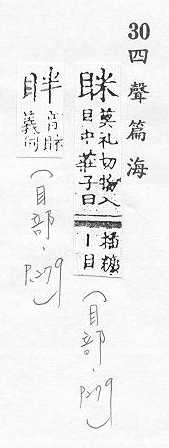 30 四聲篇海
眯 莫礼切物入目中莊子曰播糠丨目（目部、P.279）
眫 義同（目部、P.279）